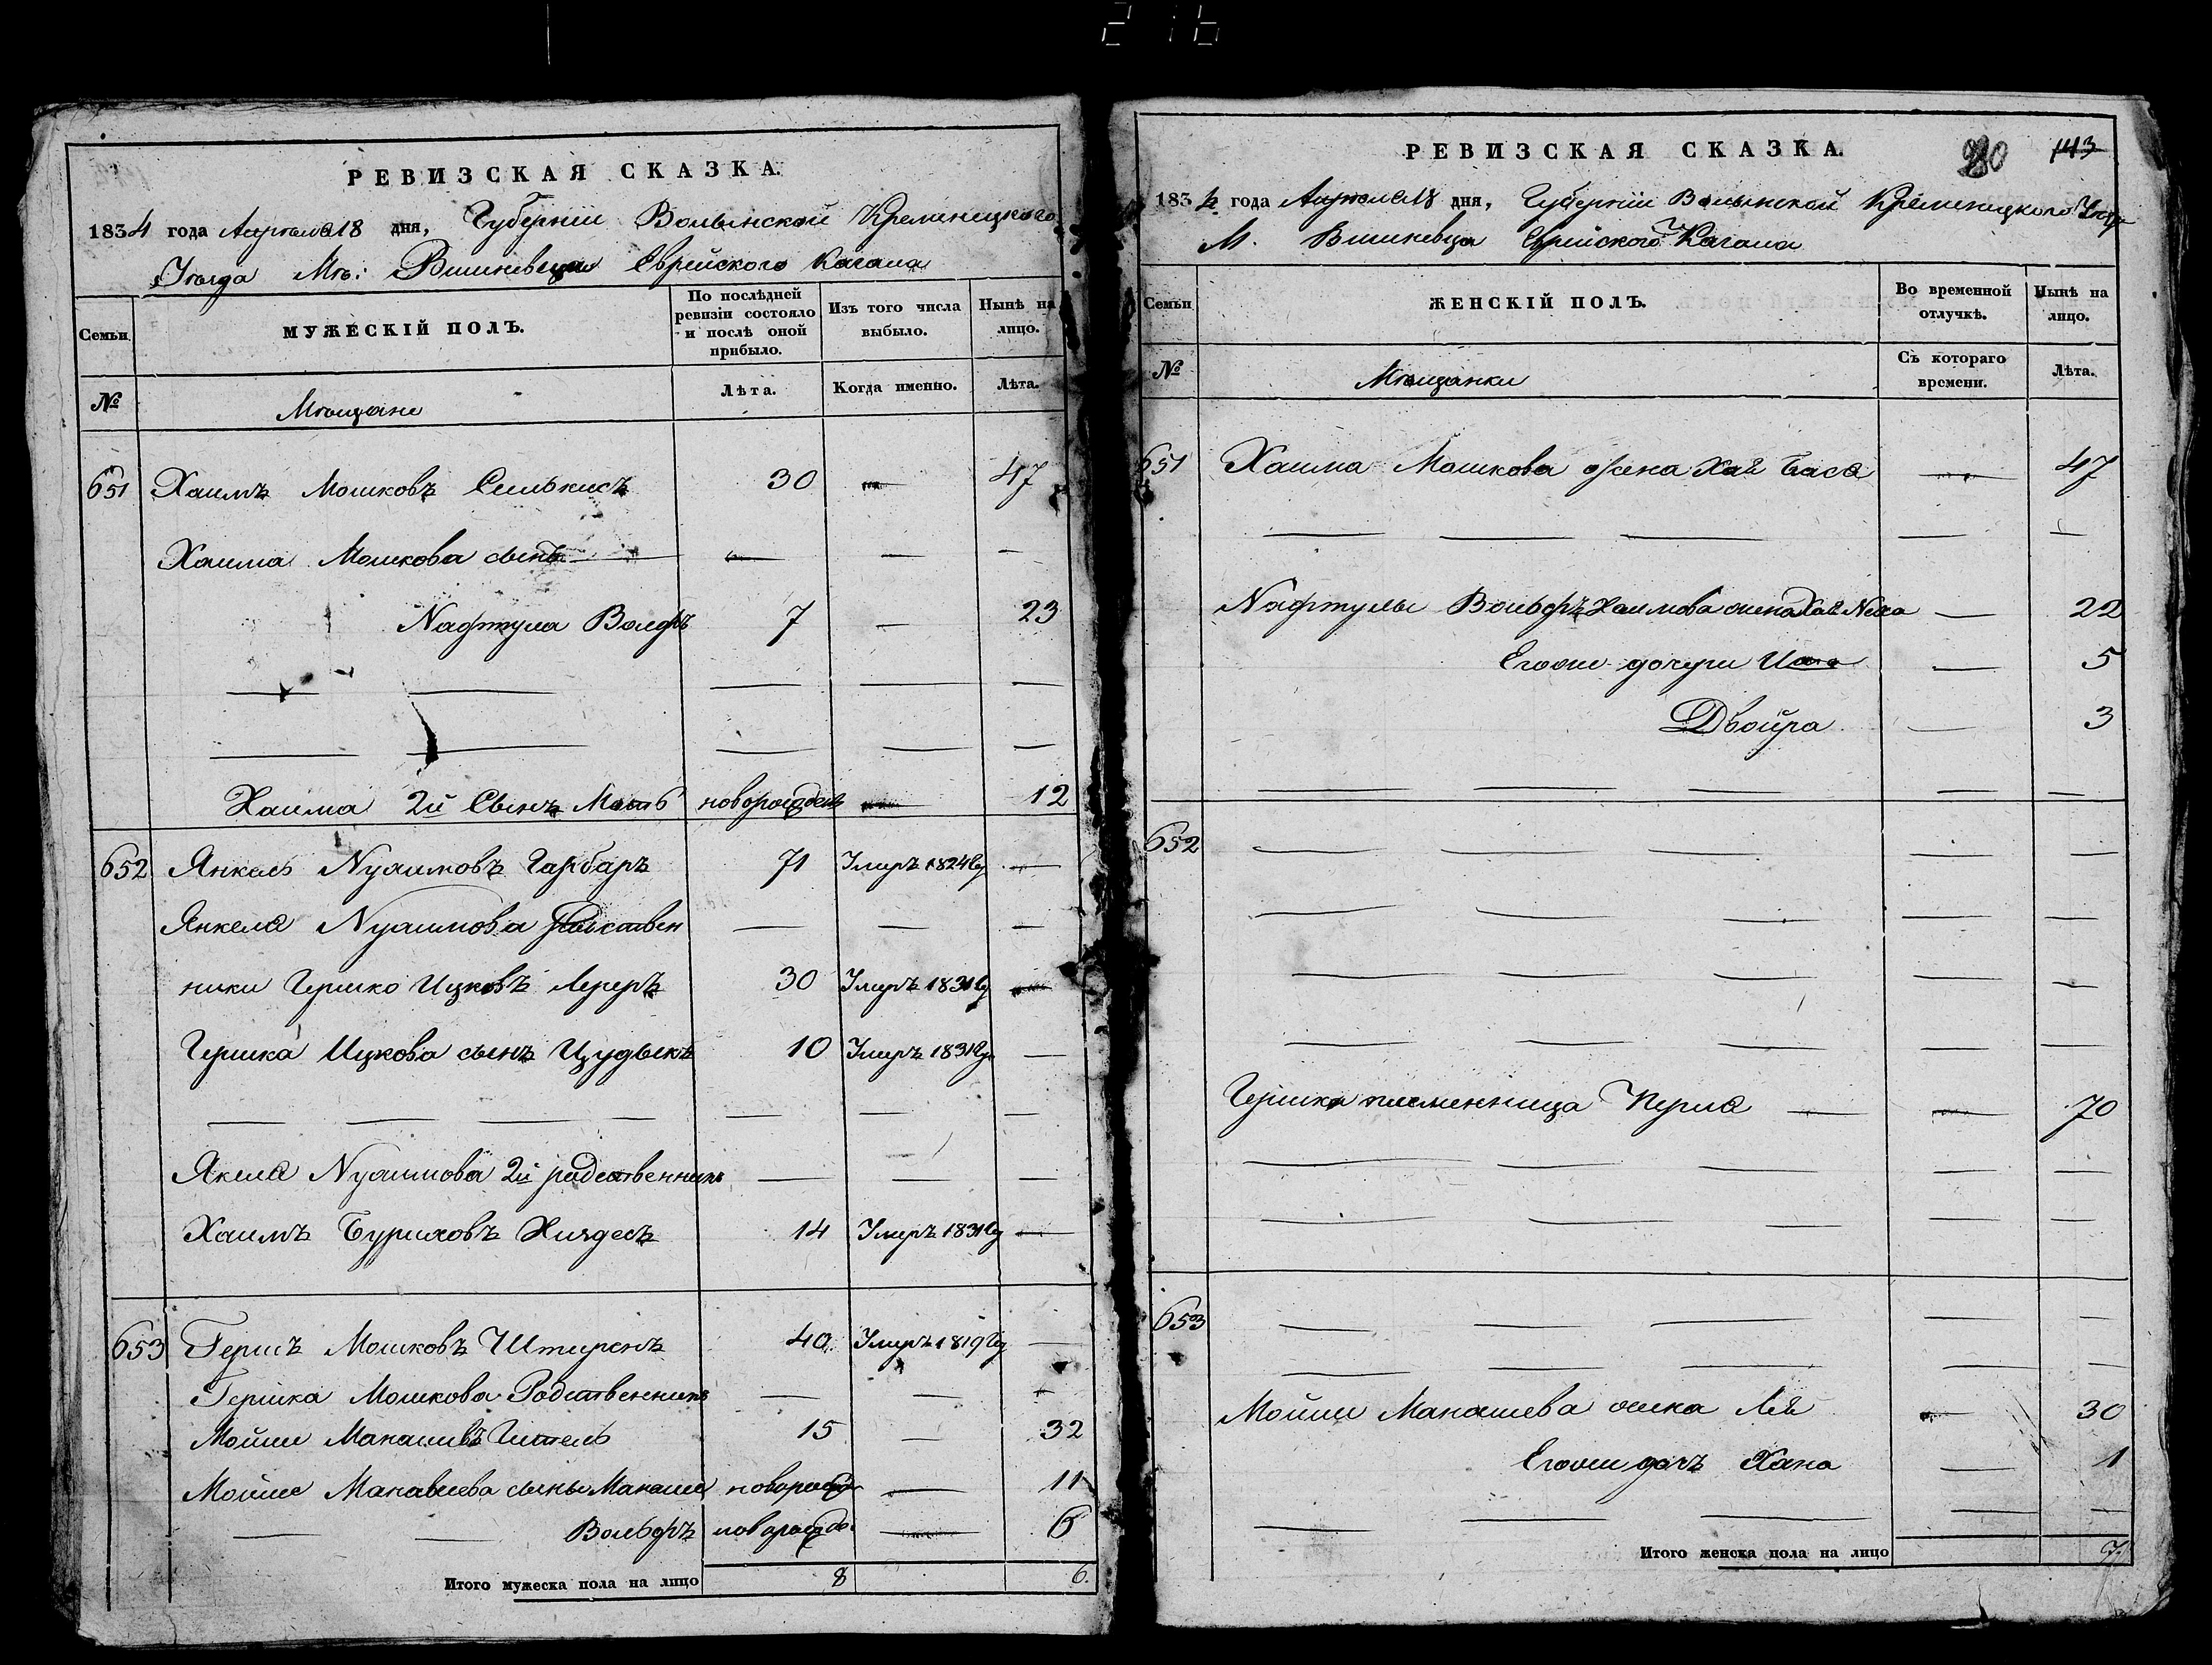 РЕВИЗСКАЯ СКАЗКА.
1834 года Апреля 18 дня, Губернии Волынской Кременецкого
Уезда Мъ: Вишневца Еврейского Кагала
Семьи
МУЖЕСКІЙ ПОЛЪ.
По послѣдней ревизіи состояло и послѣ оной прибыло.
Изъ того числа выбыло.
Нынѣ на лицо.
№
Мѣщане
Лѣта.
Когда именно.
Лѣта.
651 Хаимъ Мошковъ 30 — 47
Хаима Мошкова сынъ — — — —
Нафтула Волфъ 7 — 23
Хаима 2й Сынъ новорожден — 12
652 Янкель Нухимовъ Гарбаръ 71 Умеръ 1824 го —
Янкеля Нухимова Родствен — — —
ники Гершко Ицковъ Лереръ 30 Умеръ 1831 го —
Гершка Ицкова сынъ 10 Умеръ 1831 го —
Якеля Нухимова 2й родственникъ — — —
Хаимъ 14 Умеръ 1831 го —
653 Гершъ Мошковъ 40 Умеръ 1819 го —
Гершка Мошкова Родственникъ — — —
Мойше 15 — 32
Мойше сыны Манаше новорожд — 11
— — Вольфъ новорожде — 6
Итого мужеска пола на лицо 8 6.
РЕВИЗСКАЯ СКАЗКА.
20 143
1834 года Апреля 18 дня, Губернии Волынской Кременецкого Уезда
М. Вишневца Еврейского Кагала
Семьи
ЖЕНСКІЙ ПОЛЪ.
Во временной отлучкѣ.
Нынѣ на лицо.
№
Мѣщанки
Съ котораго времени.
Лѣта.
651 Хаима Мошкова жена Хая Бася — 47
Нафтулы Вольфъ Хаимова жена Хая — 22
Егоже дочери — 5
Двойра — 3
652
Гершка племенница Перля — — 70
653
Мойши Манашева жена Лея — 30
Егоже дочь Хана — 1
Итого женска пола на лицо 7.